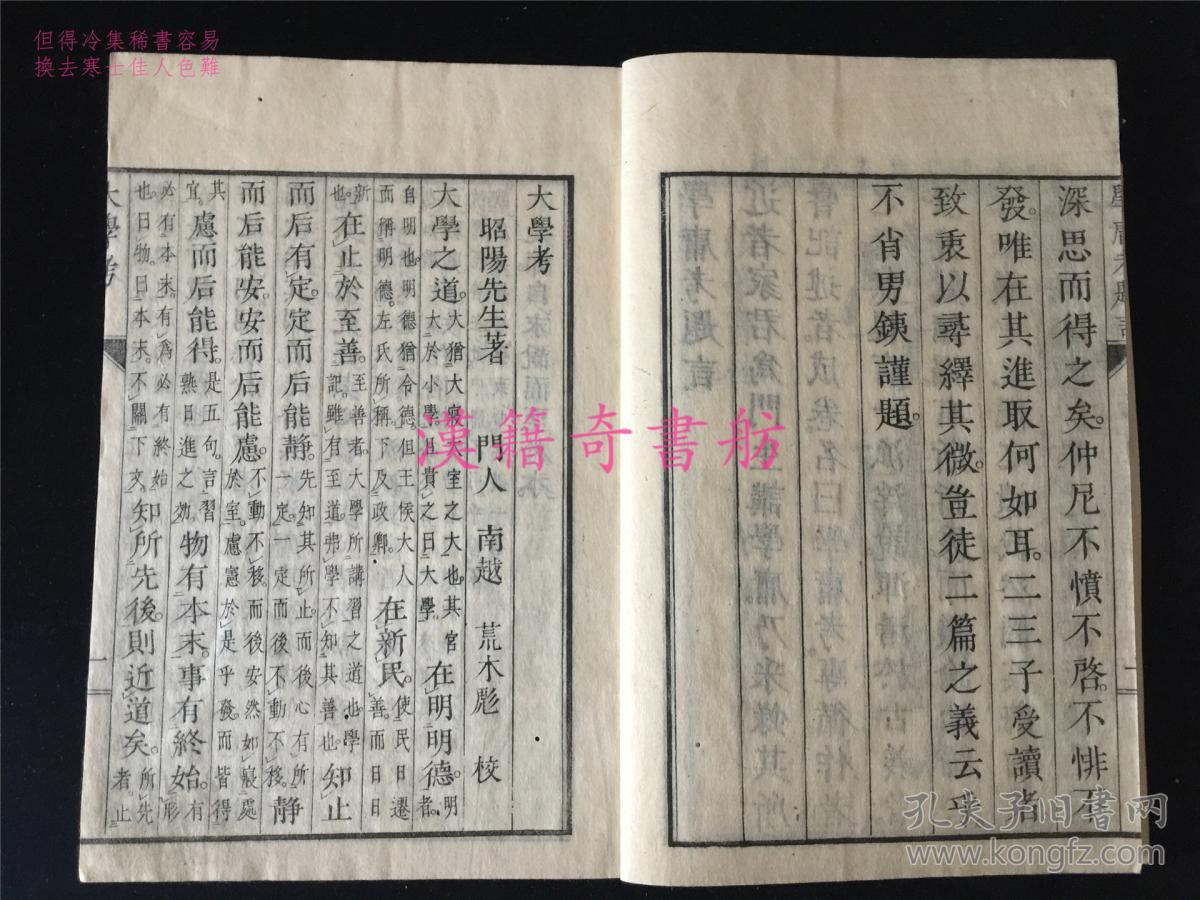 但得冷集稀書容易
換去寒士佳人色難
深思而得之矣。仲尼不憤不啓。不悱不
發。唯在其進取何如耳。二三子受讀者
致衷以尋繹其微。豈徒二篇之義云乎
不肖男銕謹題。
大學考
昭陽先生著 門人 南越 荒木彪 校
大學之道。大猶大寢大室之大也。其官大於小學。且貴之曰大學。在明明德。明者。
自明也。明德猶令德。但王侯大人而稱明德。左氏所稱。下及政卿。在新民。使民日遷善。而日
新也。在止於至善。至善者。大學所講習之道也。學記。雖有至道。弗學不知其善也。知止
而后有定。定而后能靜。先知其所止。而後心有所一定。一定而後不動不移。靜
而后能安。安而后能慮。不動不移。而後安然如寢處於室。慮憲於是乎發。而皆得
其宜。慮而后能得。是五句。言習熟日進之効。物有本末。事有終始。有形
必有本末。有爲必有終始也。曰物。曰本末。不關下文。知所先後。則近道矣。所先者。止
大學考
一
漢籍奇書舫
孔夫子旧书网
www.kongfz.com